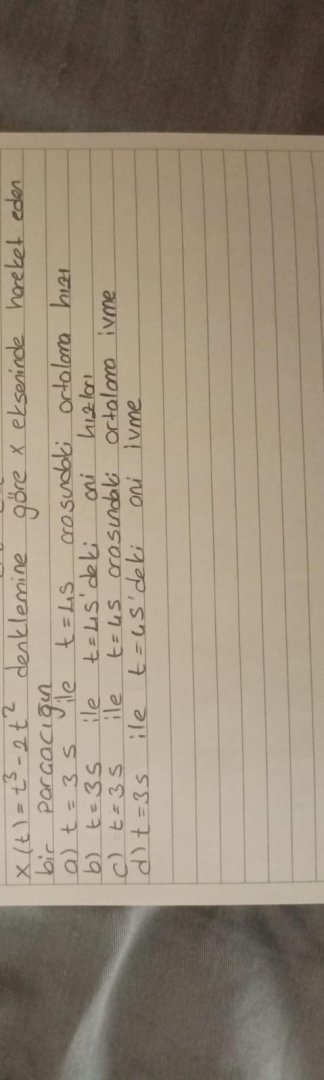 x(t) = t³ - 2t² denklemine göre x ekseninde hareket eden
bir parçacığın
a) t = 3 s ile t = 4s arasındaki ortalama hızı
b) t = 3s ile t = 4s'deki ani hızları
c) t = 3s ile t = 4s arasındaki ortalama ivme
d) t = 3s ile t = 4s'deki ani ivme